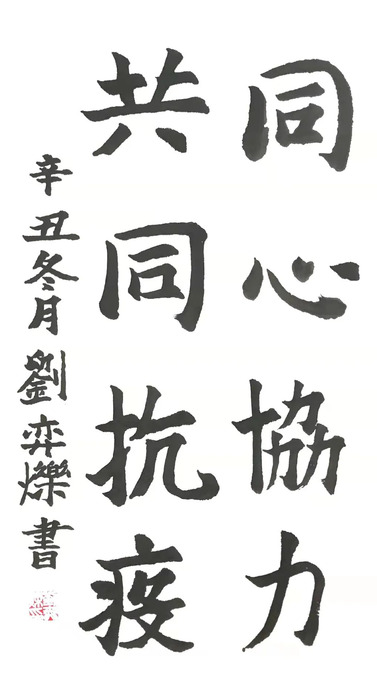 同心協力
共同抗疫
辛丑冬月劉弈爍書